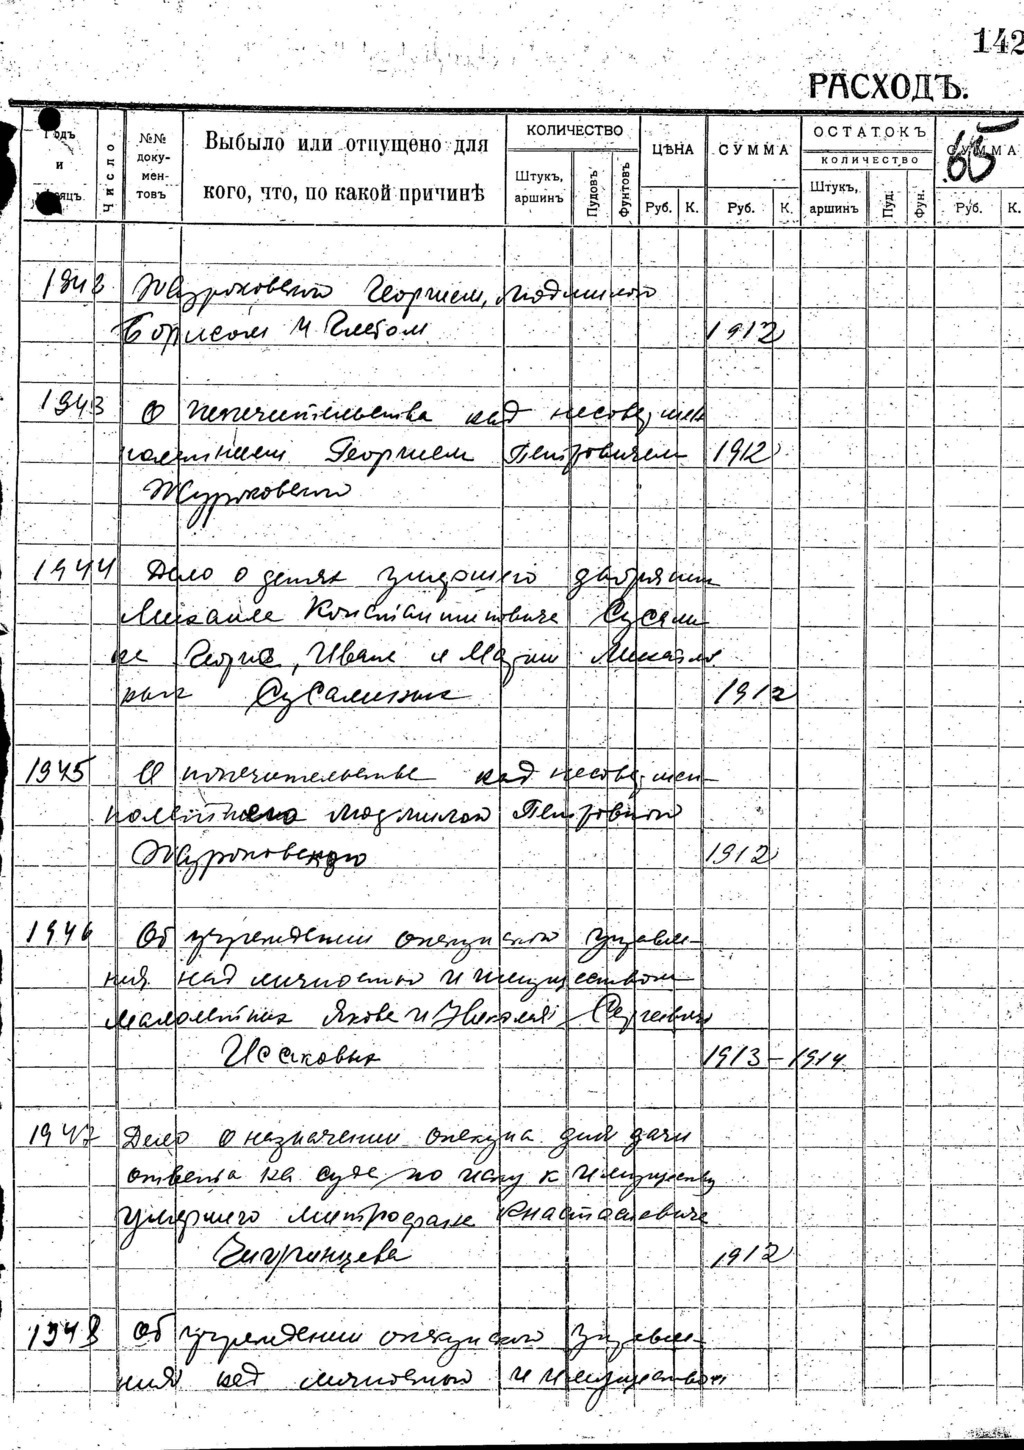 142
РАСХОДЪ.
Годъ и мѣсяцъ
Число
№№ доку-мен-товъ
Выбыло или отпущено для
кого, что, по какой причинѣ
КОЛИЧЕСТВО
Штукъ, аршинъ
Пудовъ
Фунтовъ
ЦѢНА
Руб. К.
СУММА
Руб. К.
ОСТАТОКЪ
КОЛИЧЕСТВО
Штукъ, аршинъ
Пуд.
Фун.
СУММА
Руб. К.
65
1942 Жураковского Георгием, Людмилой
Борисом и Глебом 1912
1943 О попечительства над несовершен
нолетнием Георгием Петровичем 1912
Жураковского
1944 Дело о детях умершего дворянина
Михаила Константиновича Сусали
не Георгие, Иване и Марии Михайло
вых Сусалиных 1912
1945 О попечительстве над несовершен-
нолетнего Людмилой Петровной
Жураковского 1912
1946 Об учреждении опекунского управле-
ния над личностью и имуществом
малолетних Якова и Николая Сергеевых
Исаковых 1913-1914
1947 Дело о назначении опекуна для дачи
ответа на суде по иску к имуществу
умершего Митрофана Анастасиевича
Чигринцева 1912
1948 Об учреждении опекунского управле-
ния над личностью и имуществом